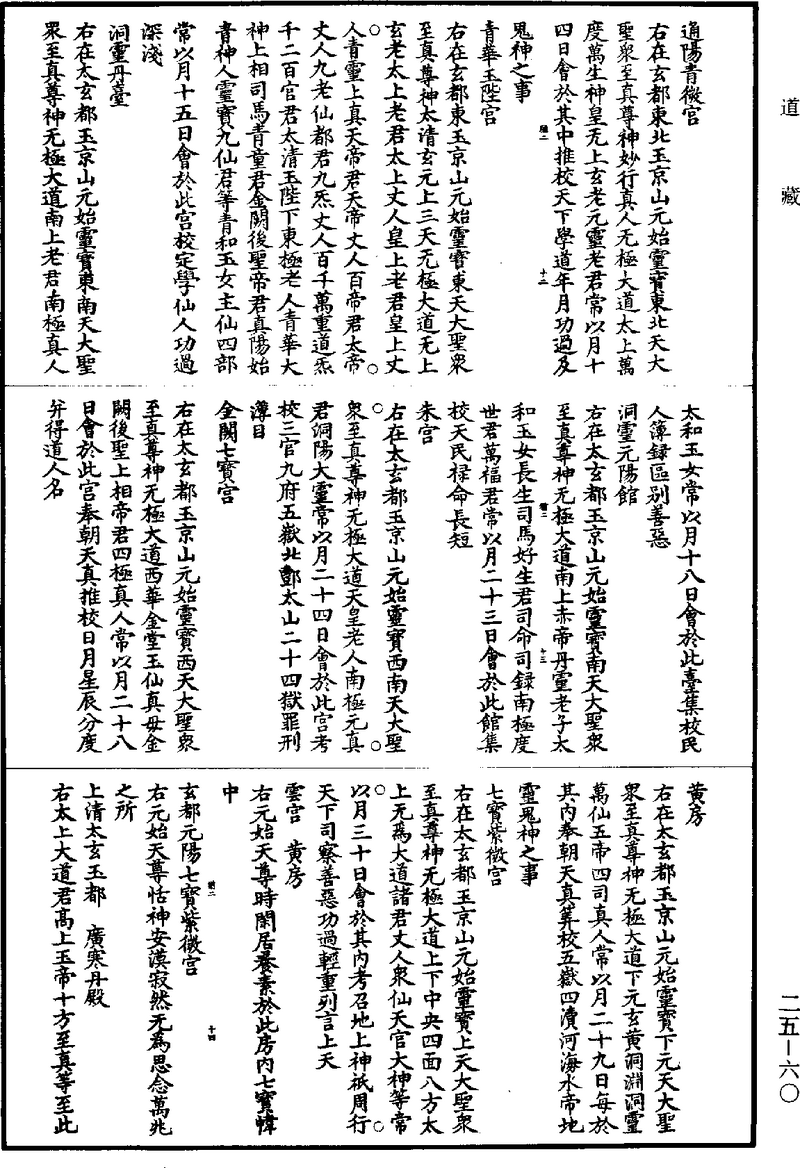 道藏
通陽青微宮
右在玄都東北玉京山元始靈寶東北天大
聖衆至真尊神妙行真人无極大道太上萬
度萬生神皇无上玄老元靈老君常以月十
四日會於其中推校天下學道年月功過及
鬼神之事
青華玉陛宮
右在玄都東玉京山元始靈寶東天大聖衆
至真尊神太清玄元上三天无極大道无上
玄老太上老君太上丈人皇上老君皇上丈
人青靈上真天帝君天帝丈人百帝君太帝
丈人九老仙都君九炁丈人百千萬重道炁
千二百官君太清玉陛下東極老人青華大
神上相司馬青童君金闕後聖帝君真陽始
青神人靈寶九仙君等青和玉女主仙四部
常以月十五日會於此宮校定學仙人功過
深淺
洞靈丹臺
右在太玄都玉京山元始靈寶東南天大聖
衆至真尊神无極大道南上老君南極真人
太和玉女常以月十八日會於此臺集校民
人簿録區别善惡
洞靈元陽館
右在太玄都玉京山元始靈寶南天大聖衆
至真尊神无極大道南上赤帝丹靈老子太
和玉女長生司馬好生君司命司録南極度
世君萬福君常以月二十三日會於此館集
校天民禄命長短
朱宮
右在太玄都玉京山元始靈寶西南天大聖
衆至真尊神无極大道天皇老人南極元真
君洞陽大靈常以月二十四日會於此宮考
校三官九府五嶽北酆太山二十四獄罪刑
簿目
金闕七寶宮
右在太玄都玉京山元始靈寶西天大聖衆
至真尊神无極大道西華金堂玉仙真母金
闕後聖上相帝君四極真人常以月二十八
日會於此宮奉朝天真推校日月星辰分度
并得道人名
黄房
右在太玄都玉京山元始靈寶下元天大聖
衆至真尊神无極大道下元玄黄洞淵洞靈
萬仙五帝四司真人常以月二十九日每於
其内奉朝天真筭校五嶽四瀆河海水帝地
靈鬼神之事
七寶紫微宮
右在太玄都玉京山元始靈寶上天大聖衆
至真尊神无極大道上下中央四面八方太
上无爲大道諸君丈人衆仙天官大神等常
以月三十日會於其内考召地上神祇周行
天下司察善惡功過輕重列言上天
雲宮　黄房
右元始天尊時閑居養素於此房内七寶幃
中
玄都元陽七寶紫微宮
右元始天尊恬神安漠寂然无爲思念萬兆
之所
上清太玄玉都　廣寒丹殿
右太上大道君高上玉帝十方至真等至此
二五－六〇